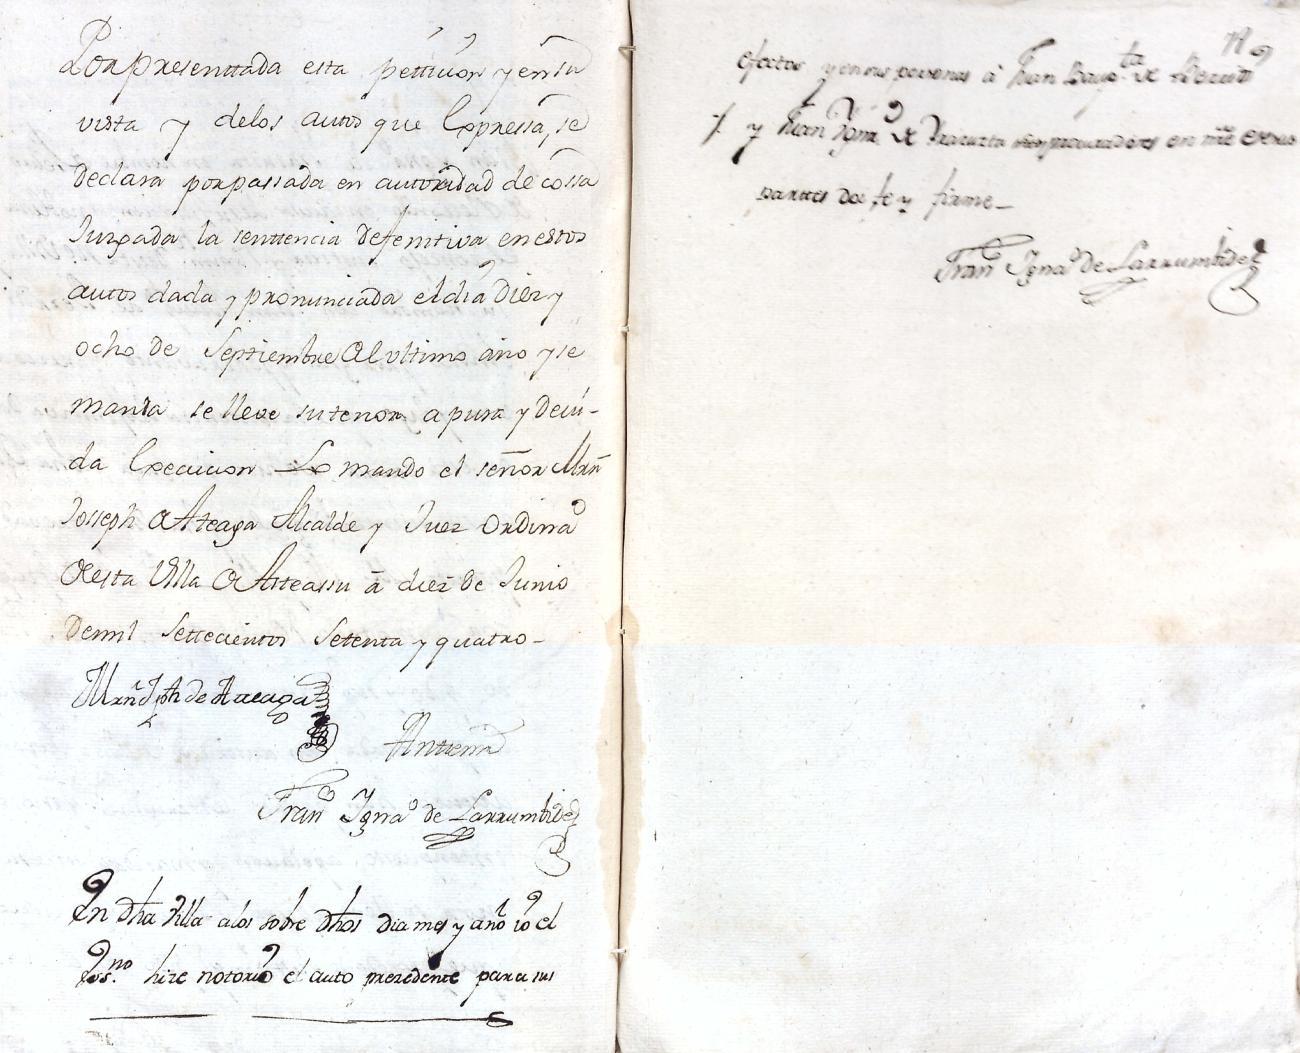 Por presenttada esta pettición y en su
vista y delos autos que Expressa, se
declara por passada en autoridad de cossa
Juzgada la senttencia defenitiva en estos
autos dada y pronunciada el dia diez y
ocho de Septiembre del ultimo año y se
manda se lleve su tenor a pura y devi-
da Execicion Lo mando el señor Mrñ
Josseph de Ateaga Alcalde y Juez Ordinro
de esta Villa de Arteassu â diez de Junio
de mil settecientos Setenta y quatro-
Mrñ Jph de Atteaga
Antemi
Frano Ignao de Larrumbide
En dha Villa a los sobre dhos dia mes y año io el
Essno hize notorio el auto precedente para sus
efectos y en sus personas â Juan Baupta de
y Juan Ignao de procuradores en nre
parttes doi fe y firme-
Frano Ignao de Larrumbide